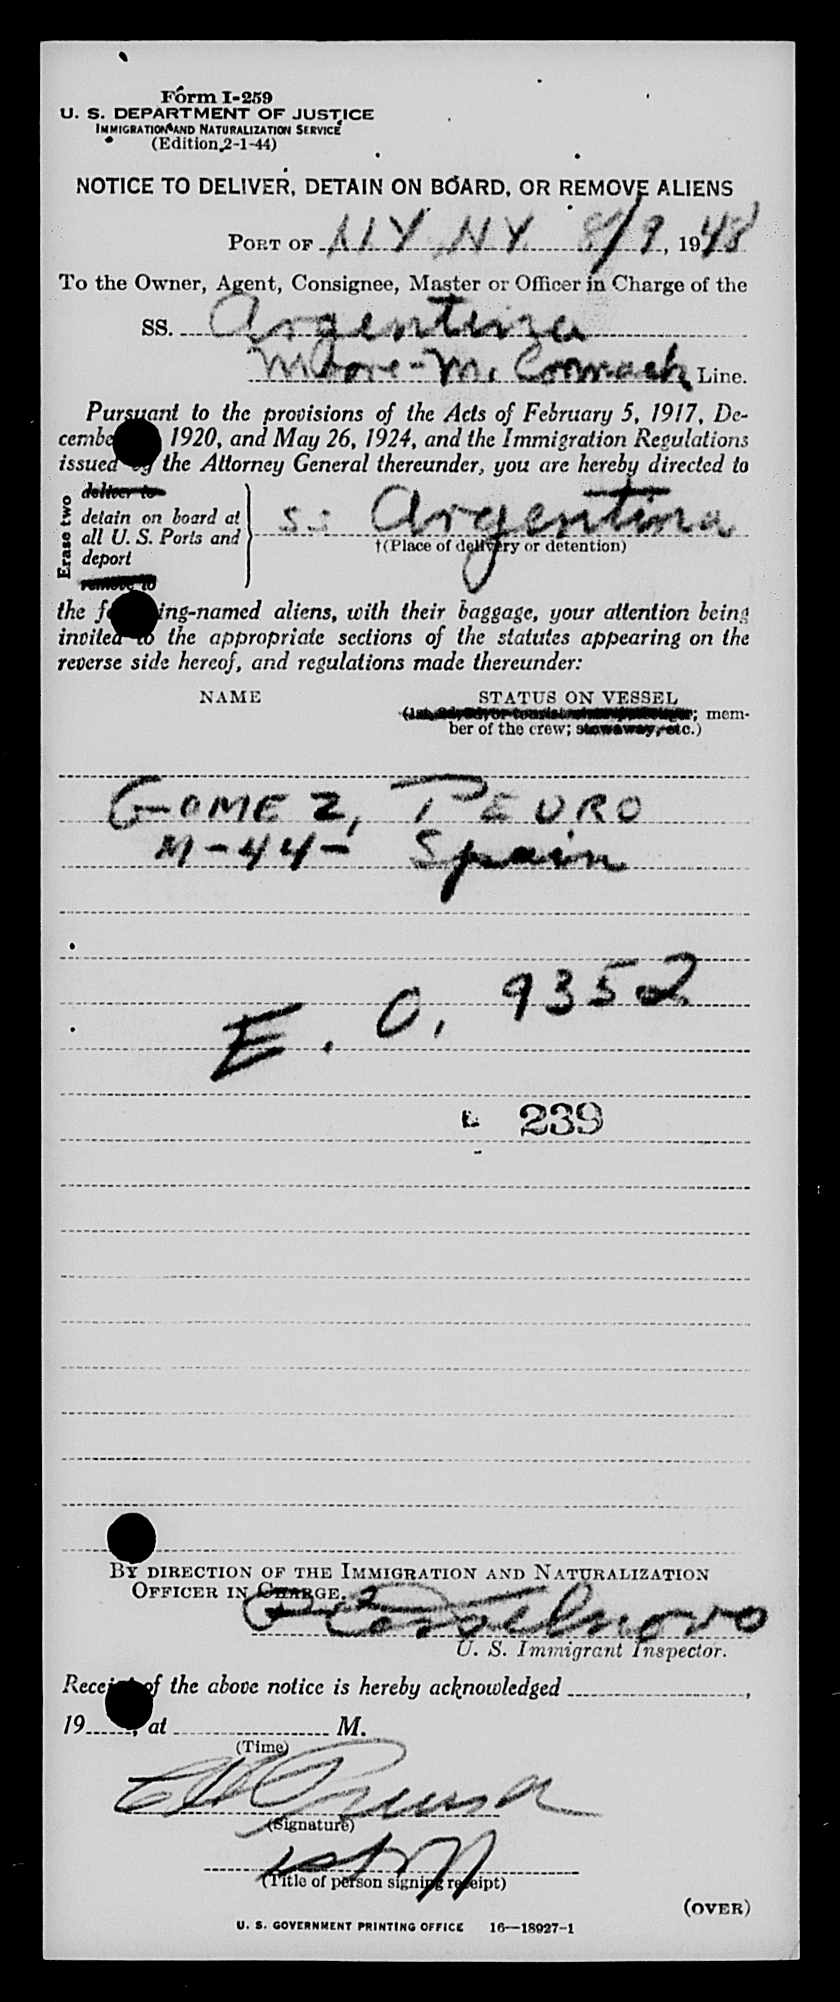 Form I-259
U. S. DEPARTMENT OF JUSTICE
IMMIGRATION AND NATURALIZATION SERVICE
(Edition 2-1-44)
NOTICE TO DELIVER, DETAIN ON BOARD, OR REMOVE ALIENS
PORT OF NY, NY. 8/9, 1948
To the Owner, Agent, Consignee, Master or Officer in Charge of the
SS. Argentina
Moore-McCormack Line.
Pursuant to the provisions of the Acts of February 5, 1917, De-
cembe 1920, and May 26, 1924, and the Immigration Regulations
issued by the Attorney General thereunder, you are hereby directed to
Erase two
deliver to
detain on board at
all U. S. Ports and
deport
remove to
SS Argentina
†(Place of delivery or detention)
the f ing-named aliens, with their baggage, your attention being
invited to the appropriate sections of the statutes appearing on the
reverse side hereof, and regulations made thereunder:
NAME STATUS ON VESSEL
; mem-
ber of the crew; stowaway, etc.)
GOMEZ, PEDRO
M-44- Spain
E. O. 9352
239
BY DIRECTION OF THE IMMIGRATION AND NATURALIZATION
OFFICER IN CHARGE.
U. S. Immigrant Inspector.
Receipt of the above notice is hereby acknowledged ,
19 , at M.
(Time)
(Signature)
(Title of person signing receipt)
(OVER)
U. S. GOVERNMENT PRINTING OFFICE 16—18927-1